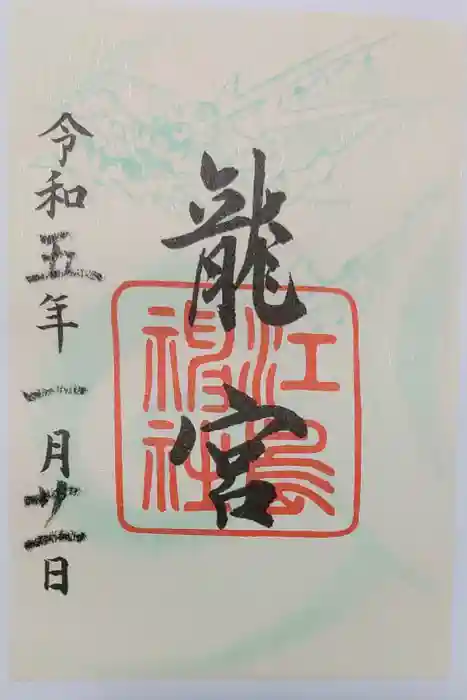 龍宮
江島
神社
令和五年一月廿一日